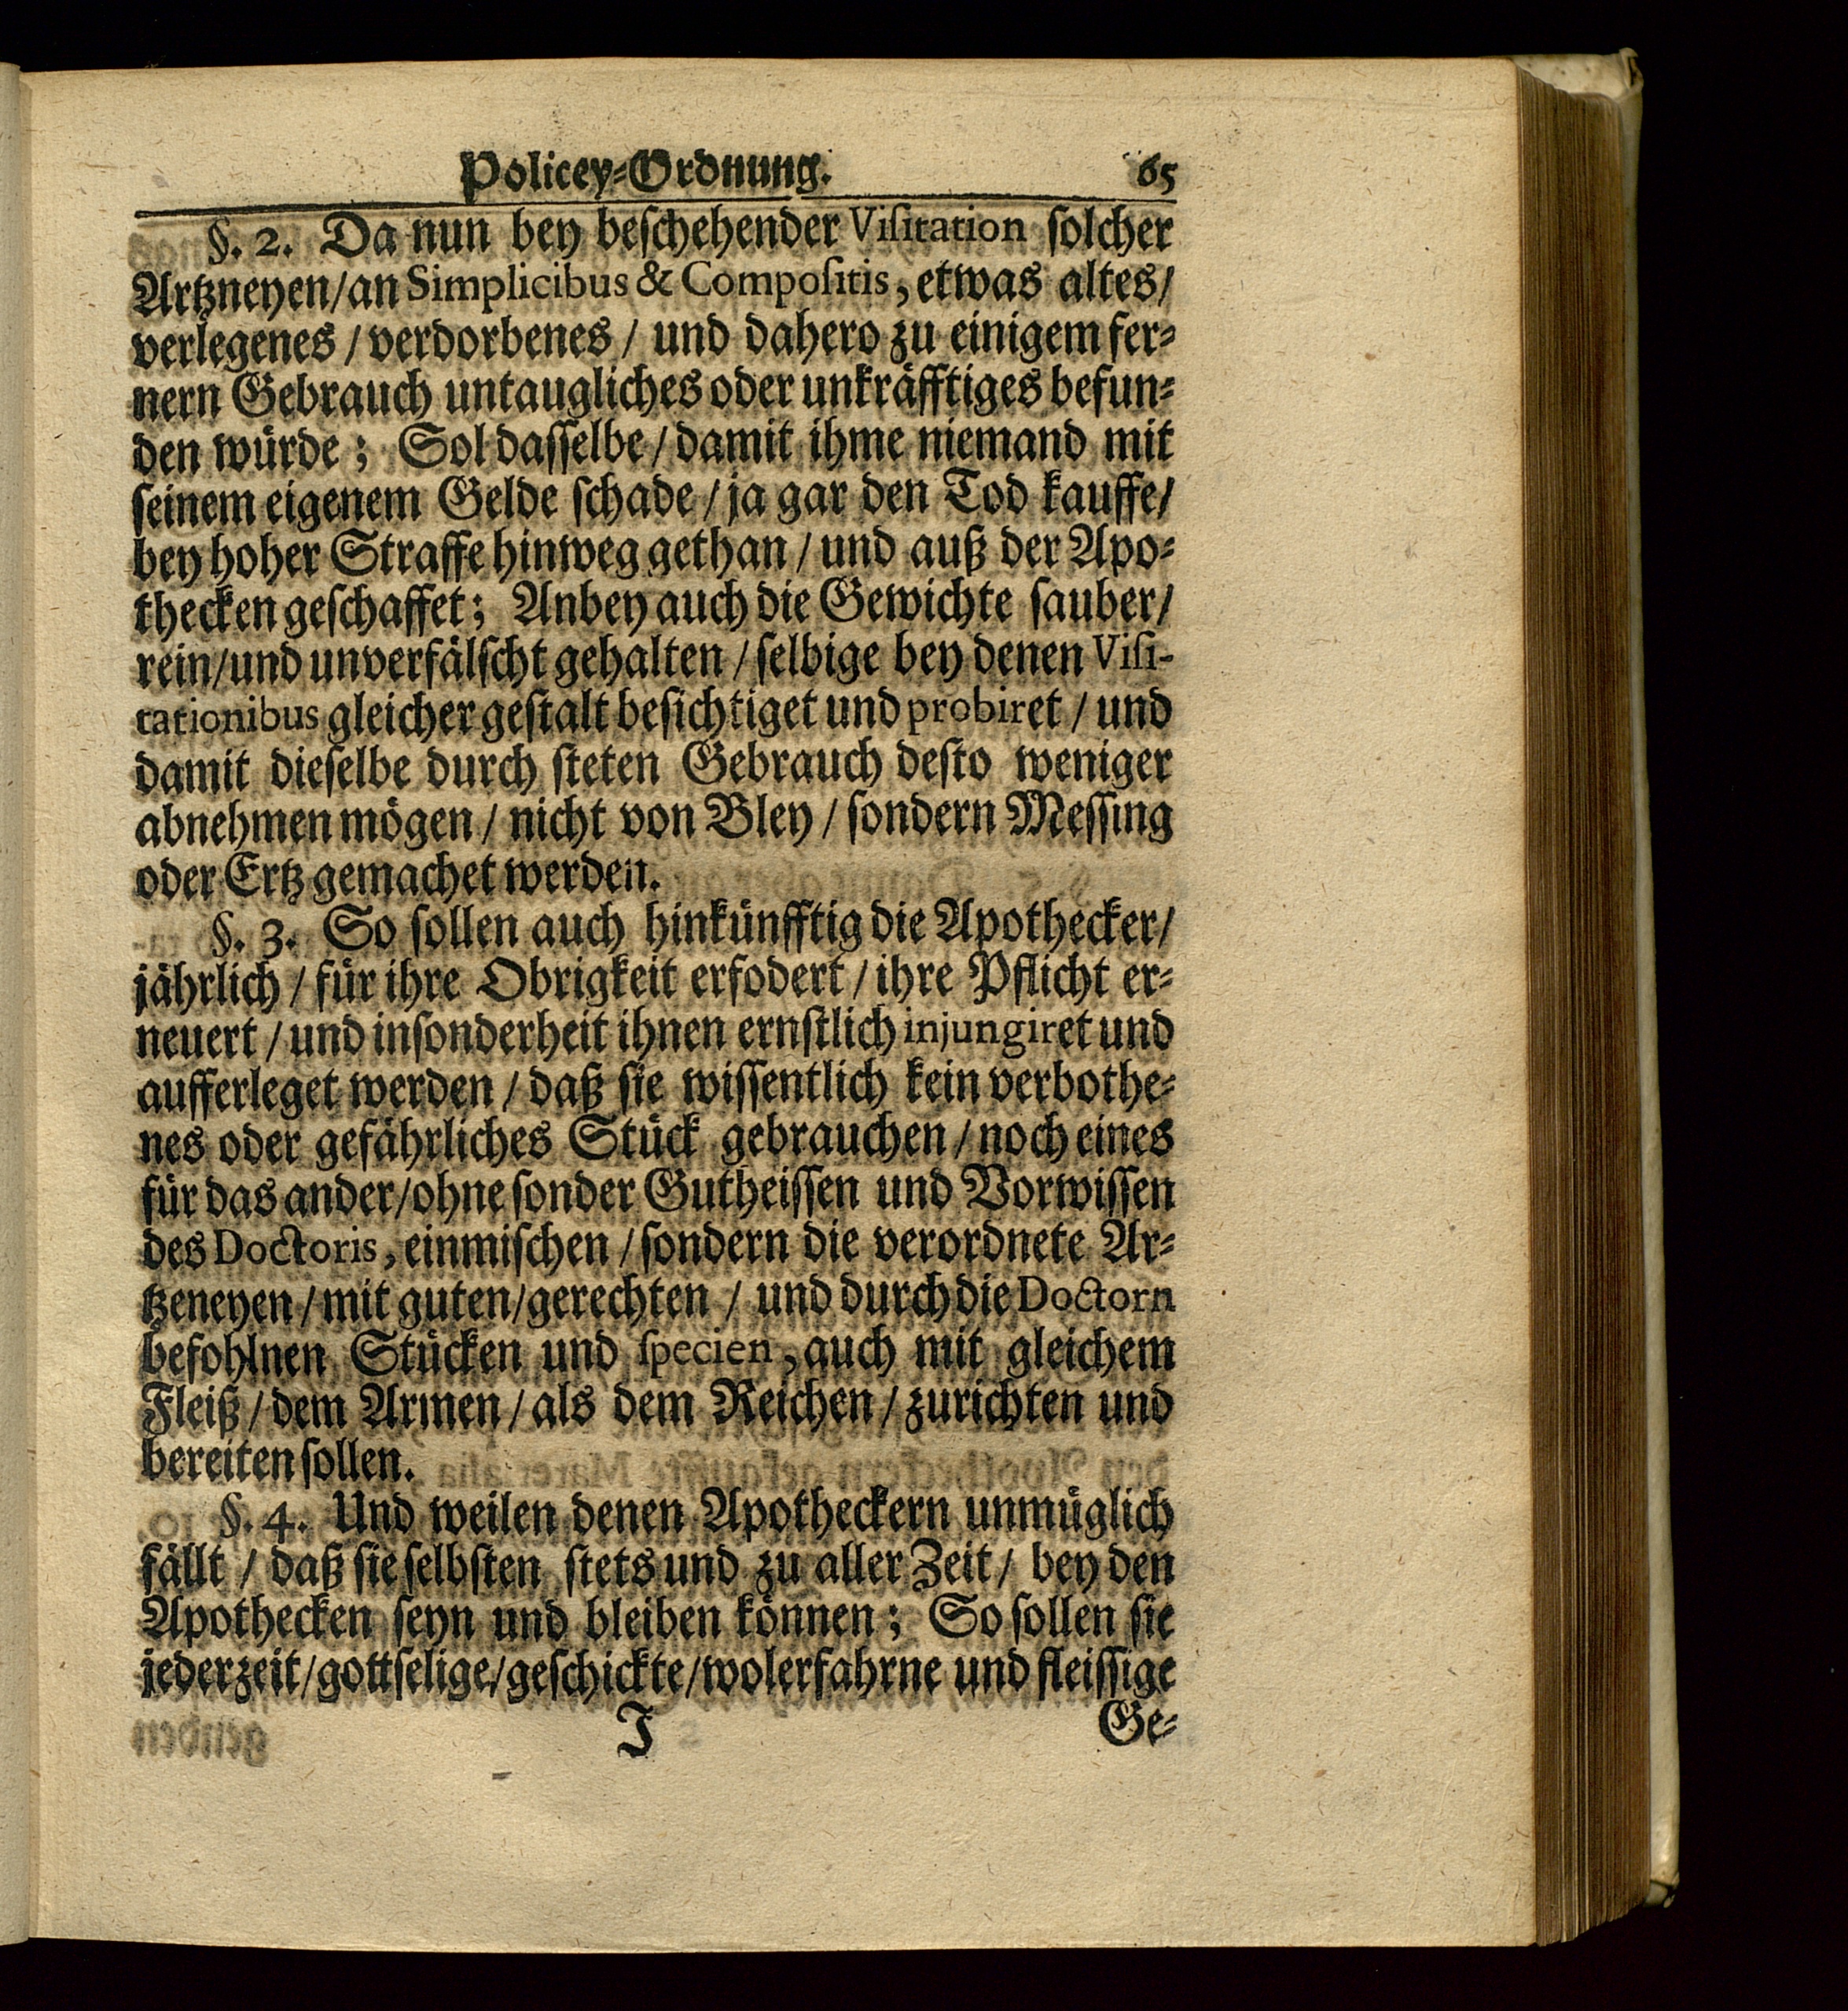 Policey-Ordnung. 65
§. 2. Da nun bey beſchehender Viſitation ſolcher
Artzneyen/an Simplicibus & Compoſitis, etwas altes/
verlegenes / verdorbenes / und dahero zu einigem fer-
nern Gebrauch untaugliches oder unkräfftiges befun-
den würde; Sol daſſelbe / damit ihme niemand mit
ſeinem eigenem Gelde ſchade / ja gar den Tod kauffe/
bey hoher Straffe hinweg gethan / und auß der Apo-
thecken geſchaffet; Anbey auch die Gewichte ſauber/
rein/und unverfälſcht gehalten / ſelbige bey denen Viſi-
tationibus gleicher geſtalt beſichtiget und probiret / und
damit dieſelbe durch ſteten Gebrauch deſto weniger
abnehmen mögen / nicht von Bley / ſondern Meſſing
oder Ertz gemachet werden.
§. 3. So ſollen auch hinkünfftig die Apothecker/
jährlich / für ihre Obrigkeit erfodert / ihre Pflicht er-
neuert / und inſonderheit ihnen ernſtlich injungiret und
aufferleget werden / daß ſie wiſſentlich kein verbothe-
nes oder gefährliches Stück gebrauchen / noch eines
für das ander/ohne ſonder Gutheiſſen und Vorwiſſen
des Doctoris, einmiſchen / ſondern die verordnete Ar-
tzeneyen / mit guten/gerechten / und durch die Doctorn
befohlnen Stücken und ſpecien, auch mit gleichem
Fleiß / dem Armen / als dem Reichen / zurichten und
bereiten ſollen.
§. 4. Und weilen denen Apotheckern unmüglich
fällt / daß ſie ſelbſten ſtets und zu aller Zeit / bey den
Apothecken ſeyn und bleiben können; So ſollen ſie
jederzeit/gottſelige/geſchickte/wolerfahrne und fleiſſige
J Ge-